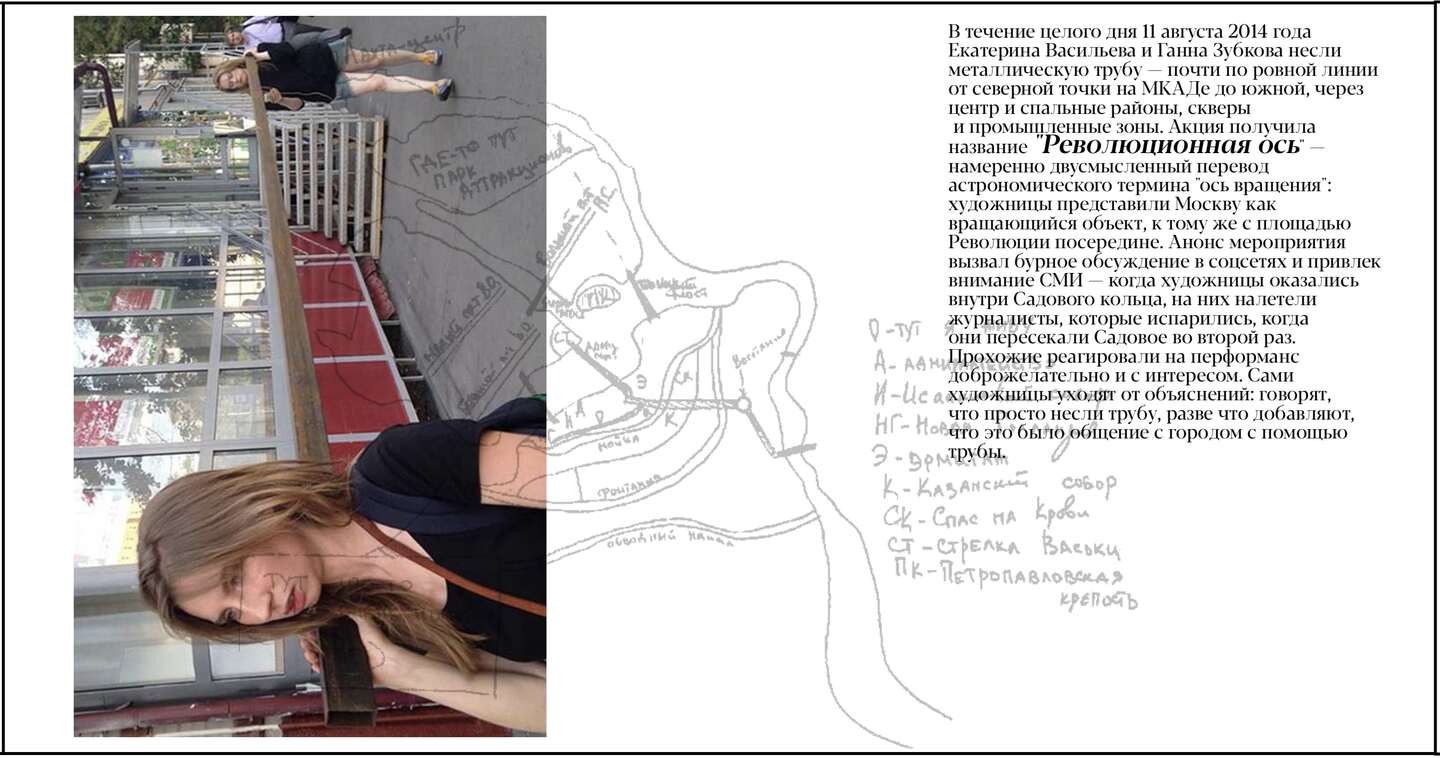 В течение целого дня 11 августа 2014 года
Екатерина Васильева и Ганна Зубкова несли
металлическую трубу — почти по ровной линии
от северной точки на МКАДе до южной, через
центр и спальные районы, скверы
и промышленные зоны. Акция получила
название "Революционная ось" —
намеренно двусмысленный перевод
астрономического термина "ось вращения":
художницы представили Москву как
вращающийся объект, к тому же с площадью
Революции посередине. Анонс мероприятия
вызвал бурное обсуждение в соцсетях и привлек
внимание СМИ — когда художницы оказались
внутри Садового кольца, на них налетели
журналисты, которые испарились, когда
они пересекали Садовое во второй раз.
Прохожие реагировали на перформанс
доброжелательно и с интересом. Сами
художницы уходят от объяснений: говорят,
что просто несли трубу, разве что добавляют,
что это было общение с городом с помощью
трубы.
ГДЕ-ТО ТУТ
ПАРК
АТТРАКЦИОНОВ
ПК
СТ
Э
СК
К
МОЙКА
ФОНТАНКА
ОБВОДНЫЙ КАНАЛ
О-ТУТ Я ЖИВУ
Э-ЭРМИТАЖ
К-КАЗАНСКИЙ СОБОР
СК-СПАС НА КРОВИ
СТ-СТРЕЛКА ВАСЬКИ
ПК-ПЕТРОПАВЛОВСКАЯ
КРЕПОСТЬ